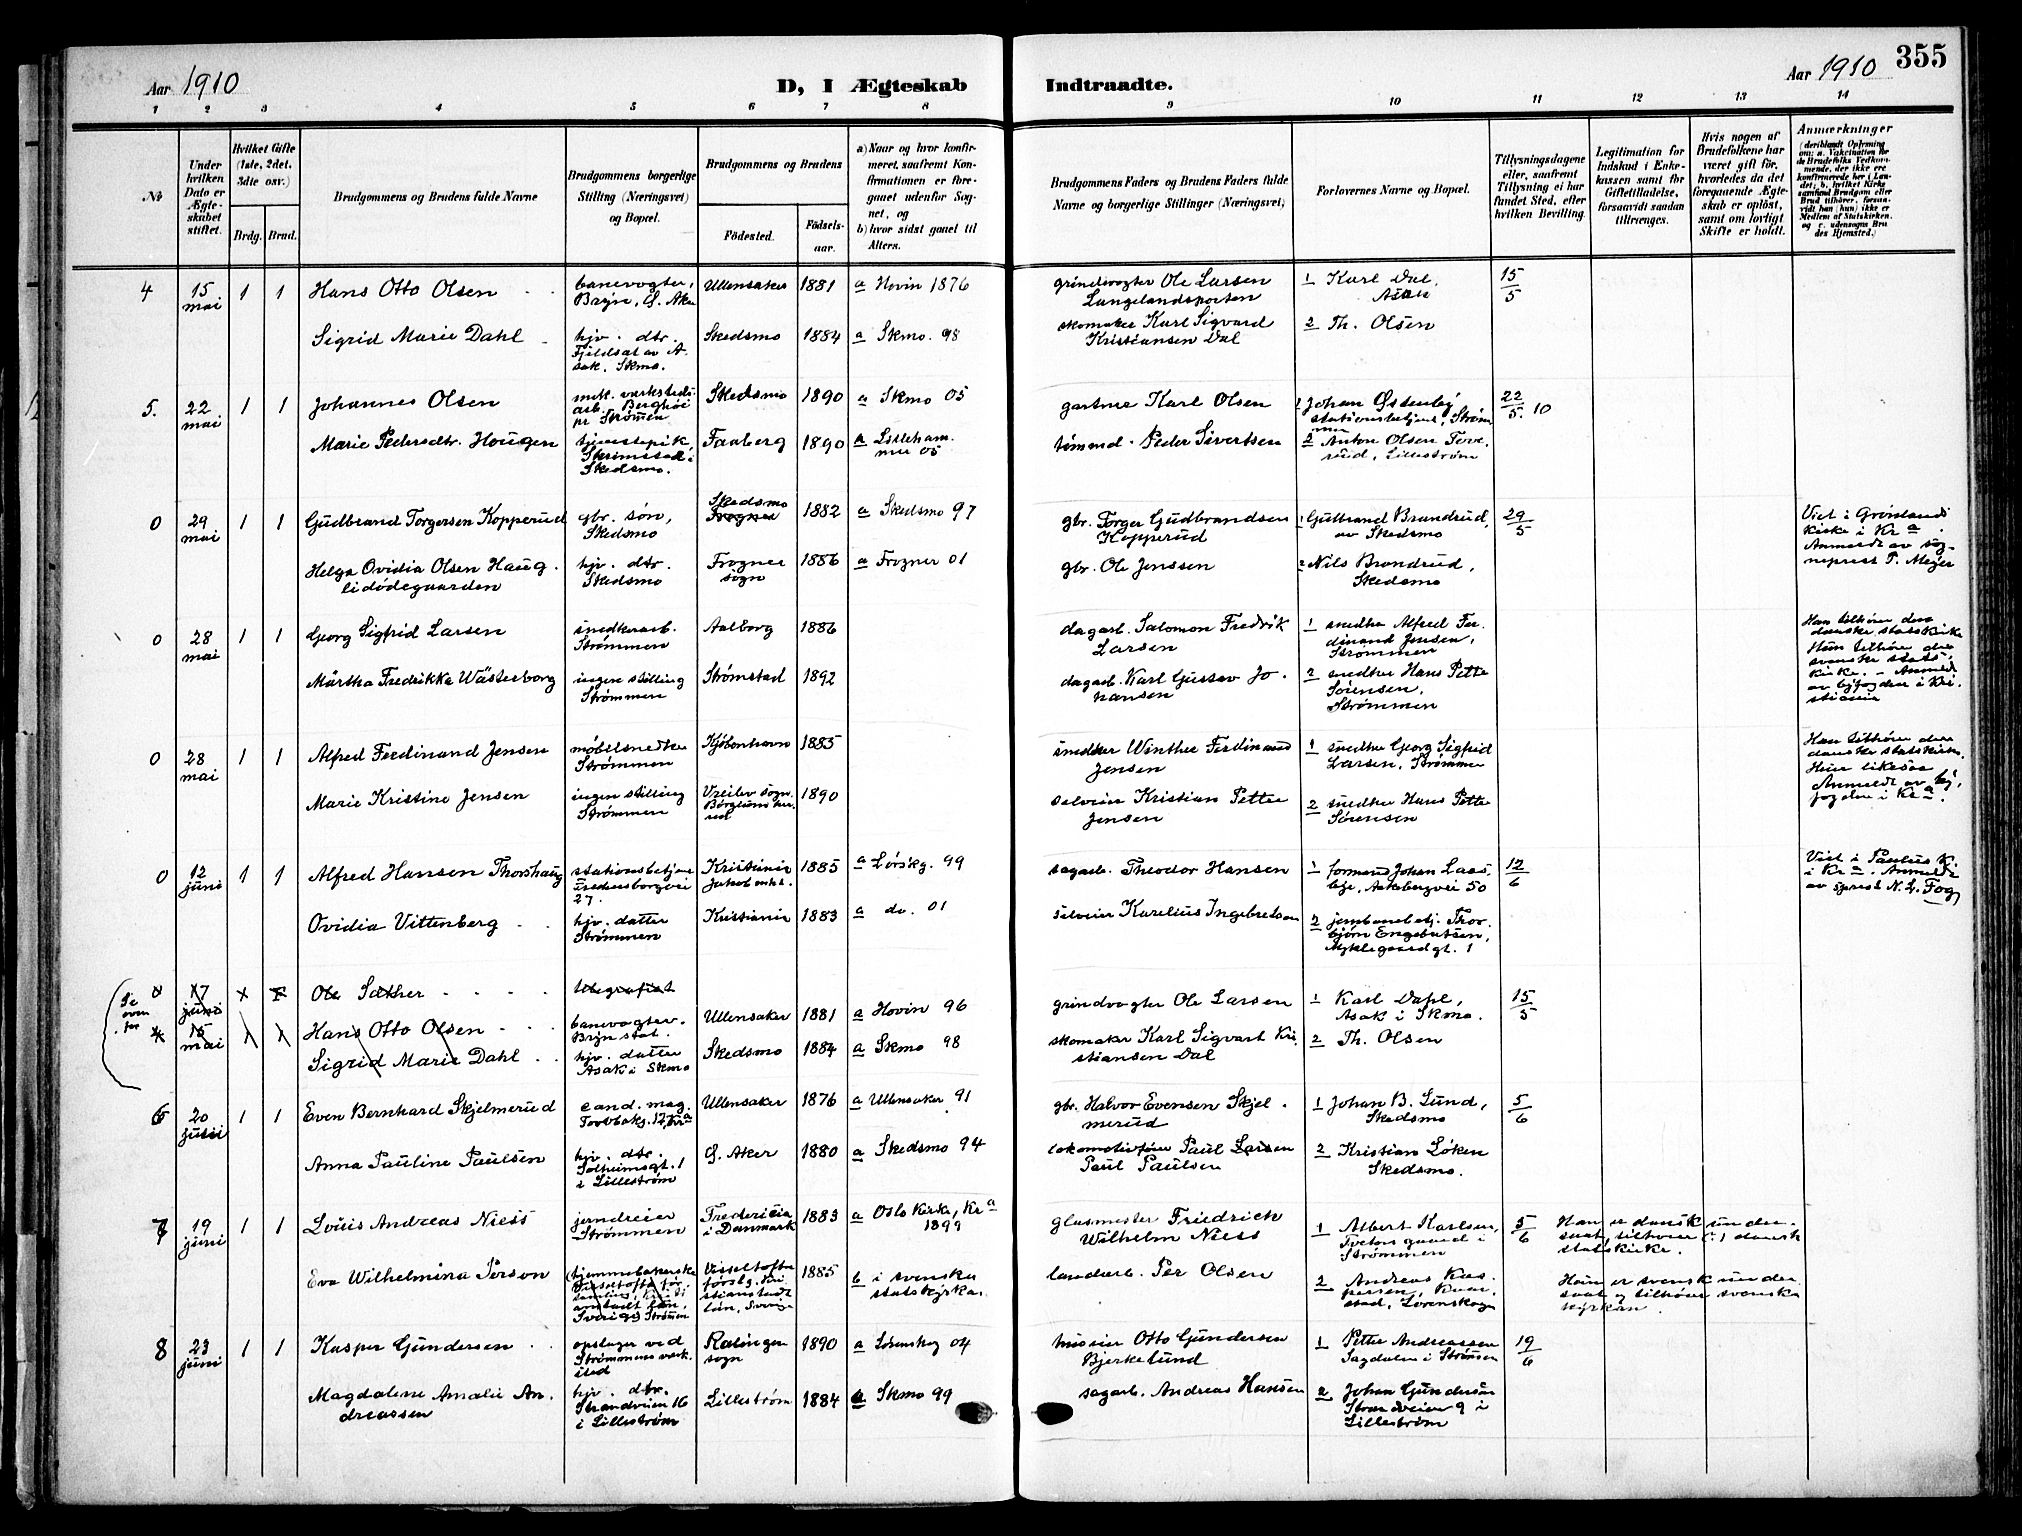 Aar 1910
D, I Ægteskab
Indtraadte.
Aar 1910
355
1 2 3 4 5 6 7 8 9 10 11 12 13 14
№
Under hvilken Dato er Ægteskabet stiftet.
Hvilket Gifte (1ste, 2det, 3die osv.)
Brdg. Brud.
Brudgommens og Brudens fulde Navne
Brudgommens borgerlige Stilling (Næringsvei) og Bopæl.
Brudgommens og Brudens
Fødested.
Fødselsaar.
a) Naar og hvor konfirmeret, saafremt Konfirmationen er foregaaet udenfor Sognet, og
b) hvor sidst gaaet til Alters.
Brudgommens Faders og Brudens Faders fulde Navne og borgerlige Stillinger (Næringsvei)
Forlovernes Navne og Bopæl.
Tillysningsdagene eller, saafremt Tillysning ei har fundet Sted, efter hvilken Bevilling.
Legitimation for Indskud i Enkekassen samt for Giftetilladelse, forsaavidt saadan tiltrænges.
Hvis nogen af Brudefolkene har været gift før, hvorledes da det foregaaende Ægteskab er opløst, samt om lovligt Skifte er holdt.
Anmærkninger
4 15 mai 1 1 Hans Otto Olsen banevogter, Bryn, Ø. Aker Ullensaker 1881 a Hovin 1876 grindvogter Ole Larsen Langelandsporten 1 Karl Dal, Asak 15/5
Sigrid Marie Dahl hjv. dtr. Fjeldsat av Asak, Skmo. Skedsmo 1884 a Skmo. 98 skomaker Karl Sigvard Kristiansen Dal 2 Th. Olsen
5. 22 mai 1 1 Johannes Olsen mek. verksteds arb. Berghøi pr Strømen Skedsmo 1890 a Skmo 05 gartner Karl Olsen 1 Johan Østenbÿ stationsbetjent, Strømmen 22/5 10
Marie Pedersdtr. Hougen tjenestepik, Skedsmo. Faaberg 1890 a Lilleham mer 05 tømmd. Peder Sivertsen 2 Anton Olsen Toverud, Lillestrøm
0 29 mai 1 1 Gudbrand Torgersen Kopperud gbr. søn, Skedsmo Skedsmo Frogner 1882 a Skedsmo 97 gbr. Torger Gudbrandsen Kopperud 1 Guttorand Brandrud, av Skedsmo 29/5 Viet i Grønlands kirke i Kra. Anmeldt av sogneprest T. Meyer
Helga Ovidia Olsen Haug lidødegaarden hjv. dtr. Skedsmo Frogner sogn 1886 a Frogner 01 gbr. Ole Jenssen 2 Nils Brandrud, Skedsmo
0 28 mai 1 1 Georg Sigfrid Larsen snedkerarb. Strømmen Aalborg 1886 dagarb. Salomon Fredrik Larsen 1 snedker Alfred Ferdinand Jensen, Strømmen Han tilhører den danske statskirke Hun tilhører den svenske statskirke. - Anmeldt av byfogden i Kristiania
Märtha Fredrikke Wästerborg ingen stilling Strømmen Strømstad 1892 dagarb. Karl Gustav Johansen 2 snedker Hans Petter Sørensen, Strømmen
0 28 mai 1 1 Alfred Ferdinand Jensen møbelsnedker Strømmen Kjöbenhavn 1885 snedker Winther Ferdinand Jensen 1 snedker Georg Sigfrid Larsen, Strømmen Han tilhører den danske statskirke. Hun likesaa Anmeldt av byfogden i Kra.
Marie Kristine Jensen ingen stilling Strømmen Vreilev sogn. Börglums herred 1890 selveier Kristian Petter Jensen 2 snedker Hans Petter Sørensen
0 12 juni 1 1 Alfred Hansen Thorshaug stationsbetjent 27. Kristiania Jakob 1885 a Lørskg. 99 sagarb. Theodor Hansen 1 formand Johan Aakebergvei 50 12/6 Viet i Paulus k. i Kra. Anmeldt av sprest N. L. Fog
Ovidia Vittenberg hjv. datter Strømmen Kristiania 1883 a do. 01 selveier Karelius Ingebretsen 2 jernbanebetj. Thorbjørn Engebretsen, Myklegaardgt. 1
Se oven for
17 juni Ole Sæther telegrafist
15 mai 1 1 Hans Otto Olsen banevogter. Bryn stat. Ullensaker 1881 a Hovin 96 grindvogter Ole Larsen 1 Karl Dahl, Asak i Skmo. 15/5
Sigrid Marie Dahl hjv. datter Asak i Skmo Skedsmo 1884 a Skmo 98 skomaker Karl Sigvart Kristiansen Dal 2 Th. Olsen
6 20 juni 1 1 Even Bernhard Skjelmerud cand. mag. Ullensaker 1876 a Ullensaker 91 gbr. Halvor Evensen Skjelmerud 1 Johan B. Sund, Skedsmo 5/6
Anna Pauline Paulsen hjv. dtr. Solheimsgt. 1 i Lillestrøm Ø. Aker 1880 a Skedsmo 94 lokomotivfører Paul Larsen Paul Paulsen 2 Kristian Løken Skedsmo.
7 19 juni 1 1 Louis Andreas Niess jerndreier Strømmen Fredericia i Danmark 1883 a Oslo Kirke, Kra 1899 glasmester Friedrich Wilhelm Niess 1 Albert Karlsen, Tvetergaard i Strømmen 5/6 Han er dansk undersaat, tilhører (:) dansk statskirke.
Eva Wilhelmina Person hjemmebakerske Strömen Visseltofta församlg. Kristianstadt län, Sverige 1885 b i svenska statskyrkan. landarb. Per Olsen 2 Andreas Kaspersen, Lørenskogen Hun er svensk undersaat og tilhører svenska kyrkan.
8 23 juni 1 1 Kasper Gundersen opslager ved Strømmens verksted Rælingen sogn 1890 a Lørenskog 04 Otto Gundersen Bjerkelund 1 Petter Andreassen Sagdalen i Strømmen 19/6
Magdalene Amalie Andreassen hjv. dtr. Strandveien 16 i Lillestrøm Lillestrøm 1884 a Skmo 99 sagarb. Andreas Hansen 2 Johan Gundersen Strandveien 9 i Lillestrøm